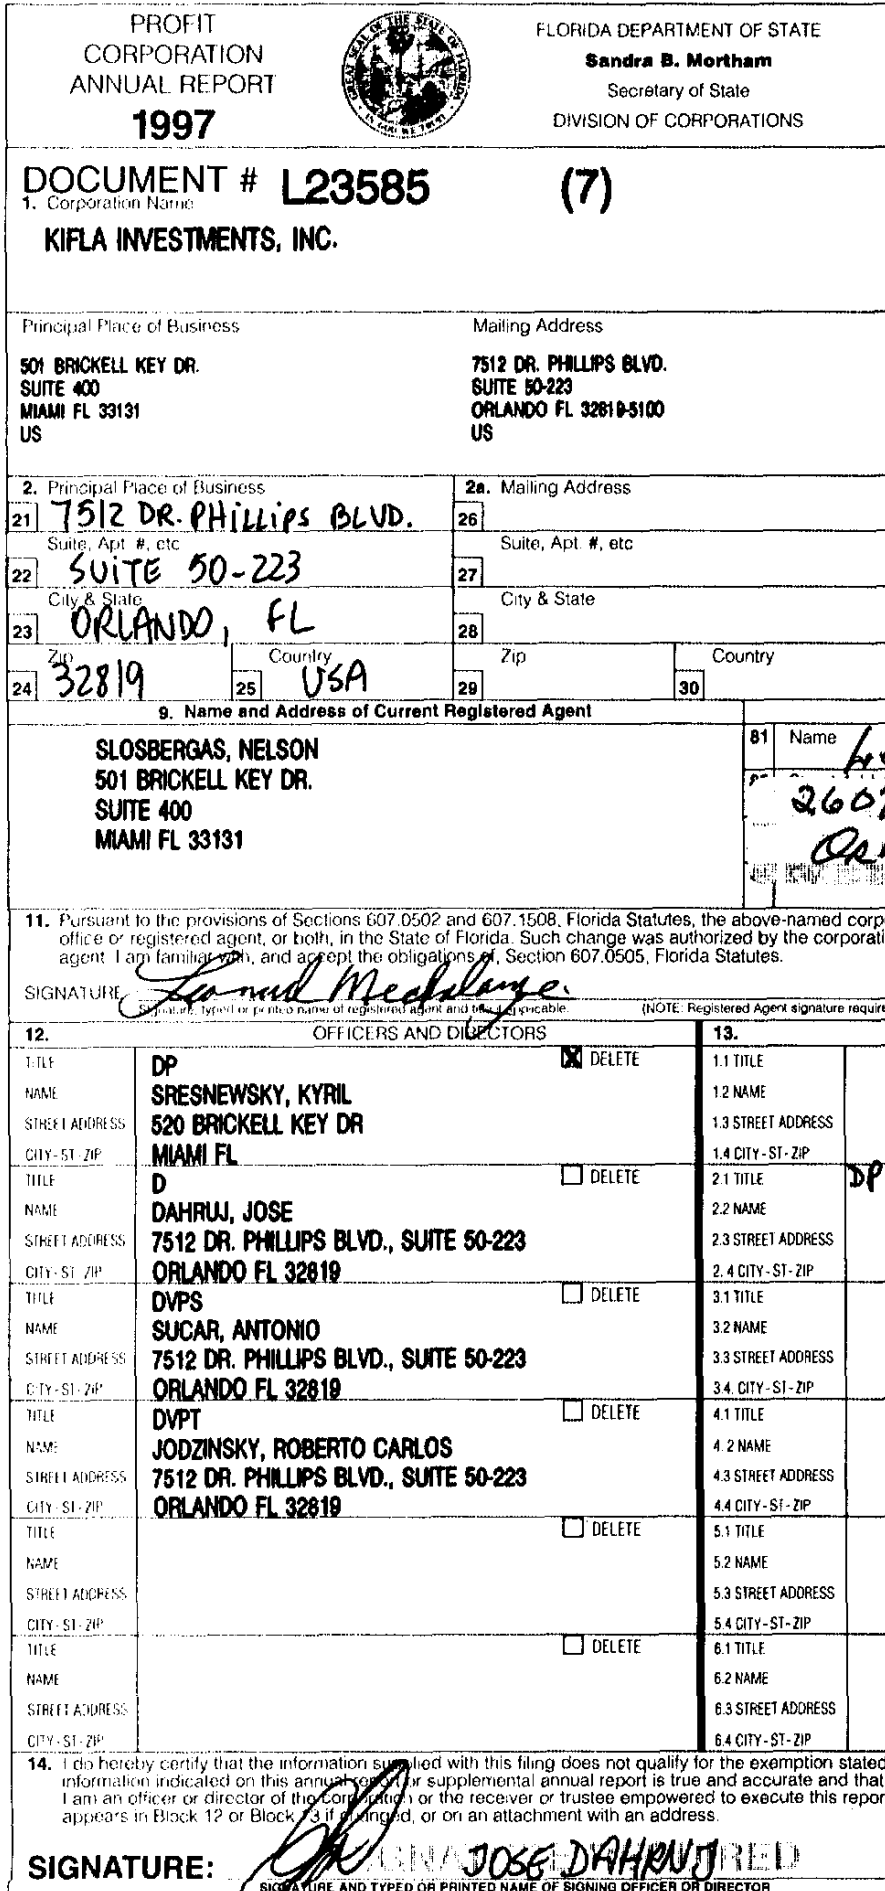 PROFIT
CORPORATION
ANNUAL REPORT
1997
GREAT SEAL OF THE STATE OF FLORIDA
IN GOD WE TRUST
FLORIDA DEPARTMENT OF STATE
Sandra B. Mortham
Secretary of State
DIVISION OF CORPORATIONS
DOCUMENT # L23585 (7)
1. Corporation Name
KIFLA INVESTMENTS, INC.
Principal Place of Business
501 BRICKELL KEY DR.
SUITE 400
MIAMI FL 33131
US
Mailing Address
7512 DR. PHILLIPS BLVD.
SUITE 50-223
ORLANDO FL 32819-5100
US
2. Principal Place of Business
21 7512 DR. PHILLIPS BLVD.
Suite, Apt. #, etc
22 SUITE 50-223
City & State
23 ORLANDO, FL
Zip
24 32819
Country
25 USA
2a. Mailing Address
26
Suite, Apt. #, etc
27
City & State
28
Zip
29
Country
30
9. Name and Address of Current Registered Agent
SLOSBERGAS, NELSON
501 BRICKELL KEY DR.
SUITE 400
MIAMI FL 33131
81 Name
260
11. Pursuant to the provisions of Sections 607.0502 and 607.1508, Florida Statutes, the above-named corp
office or registered agent, or both, in the State of Florida. Such change was authorized by the corporati
agent. I am familiar with, and accept the obligations of, Section 607.0505, Florida Statutes.
SIGNATURE
Signature, typed or printed name of registered agent and title if applicable. (NOTE: Registered Agent signature require
12. OFFICERS AND DIRECTORS 13.
TITLE DP X DELETE 1.1 TITLE
NAME SRESNEWSKY, KYRIL 1.2 NAME
STREET ADDRESS 520 BRICKELL KEY DR 1.3 STREET ADDRESS
CITY-ST-ZIP MIAMI FL 1.4 CITY-ST-ZIP
TITLE D DELETE 2.1 TITLE DP
NAME DAHRUJ, JOSE 2.2 NAME
STREET ADDRESS 7512 DR. PHILLIPS BLVD., SUITE 50-223 2.3 STREET ADDRESS
CITY-ST-ZIP ORLANDO FL 32819 2.4 CITY-ST-ZIP
TITLE DVPS DELETE 3.1 TITLE
NAME SUCAR, ANTONIO 3.2 NAME
STREET ADDRESS 7512 DR. PHILLIPS BLVD., SUITE 50-223 3.3 STREET ADDRESS
CITY-ST-ZIP ORLANDO FL 32819 3.4. CITY-ST-ZIP
TITLE DVPT DELETE 4.1 TITLE
NAME JODZINSKY, ROBERTO CARLOS 4.2 NAME
STREET ADDRESS 7512 DR. PHILLIPS BLVD., SUITE 50-223 4.3 STREET ADDRESS
CITY-ST-ZIP ORLANDO FL 32819 4.4 CITY-ST-ZIP
TITLE DELETE 5.1 TITLE
NAME 5.2 NAME
STREET ADDRESS 5.3 STREET ADDRESS
CITY-ST-ZIP 5.4 CITY-ST-ZIP
TITLE DELETE 6.1 TITLE
NAME 6.2 NAME
STREET ADDRESS 6.3 STREET ADDRESS
CITY-ST-ZIP 6.4 CITY-ST-ZIP
14. I do hereby certify that the information supplied with this filing does not qualify for the exemption stated
information indicated on this annual report or supplemental annual report is true and accurate and that
I am an officer or director of the corporation or the receiver or trustee empowered to execute this repor
appears in Block 12 or Block 13 if changed, or on an attachment with an address.
SIGNATURE: JOSE DAHRUJ
SIGNATURE AND TYPED OR PRINTED NAME OF SIGNING OFFICER OR DIRECTOR